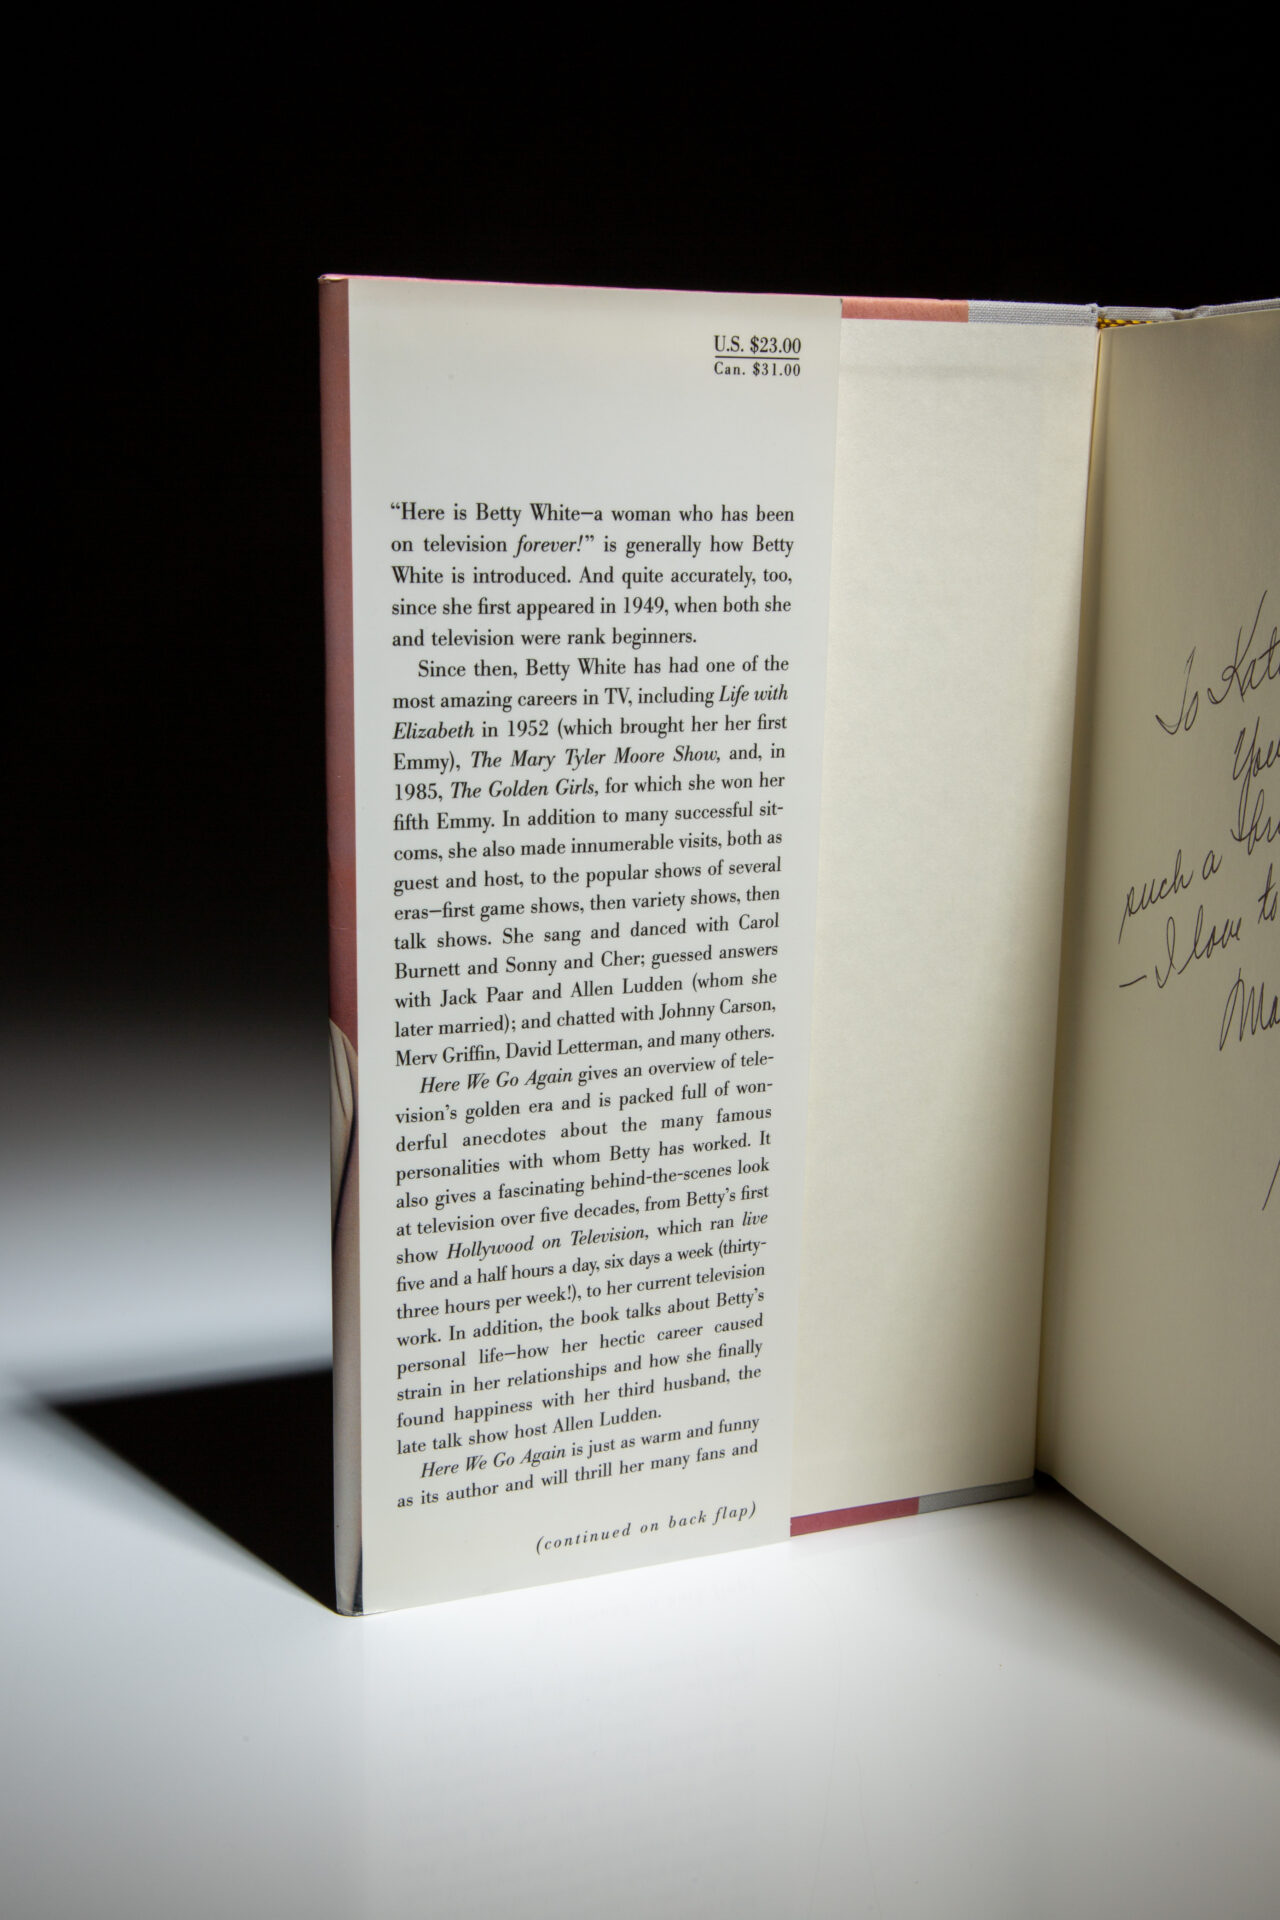 U.S. $23.00
Can. $31.00
“Here is Betty White—a woman who has been
on television forever!” is generally how Betty
White is introduced. And quite accurately, too,
since she first appeared in 1949, when both she
and television were rank beginners.
Since then, Betty White has had one of the
most amazing careers in TV, including Life with
Elizabeth in 1952 (which brought her her first
Emmy), The Mary Tyler Moore Show, and, in
1985, The Golden Girls, for which she won her
fifth Emmy. In addition to many successful sit-
coms, she also made innumerable visits, both as
guest and host, to the popular shows of several
eras—first game shows, then variety shows, then
talk shows. She sang and danced with Carol
Burnett and Sonny and Cher; guessed answers
with Jack Paar and Allen Ludden (whom she
later married); and chatted with Johnny Carson,
Merv Griffin, David Letterman, and many others.
Here We Go Again gives an overview of tele-
vision’s golden era and is packed full of won-
derful anecdotes about the many famous
personalities with whom Betty has worked. It
also gives a fascinating behind-the-scenes look
at television over five decades, from Betty’s first
show Hollywood on Television, which ran live
five and a half hours a day, six days a week (thirty-
three hours per week!), to her current television
work. In addition, the book talks about Betty’s
personal life—how her hectic career caused
strain in her relationships and how she finally
found happiness with her third husband, the
late talk show host Allen Ludden.
Here We Go Again is just as warm and funny
as its author and will thrill her many fans and
(continued on back flap)
To
such a
—I love to